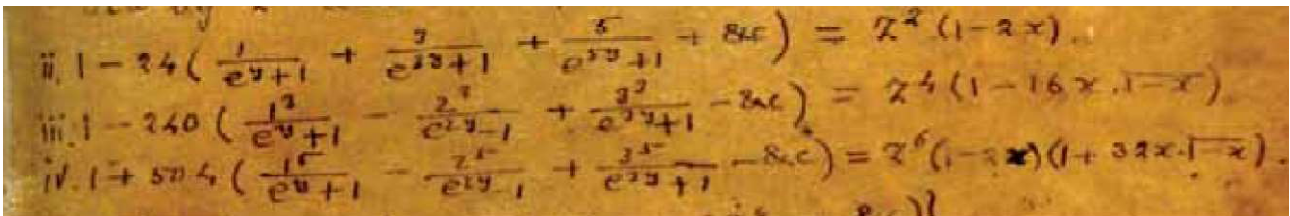 ii. 1 - 24 ( 1/(e^y+1) + 3/(e^{3y}+1) + 5/(e^{5y}+1) + &c ) = z^2 (1-2x).
iii. 1 - 240 ( 1^3/(e^y+1) - 2^3/(e^{2y}-1) + 3^3/(e^{3y}+1) - &c ) = z^4 (1 - 16x.1-x).
iv. 1 + 504 ( 1^5/(e^y+1) - 2^5/(e^{2y}-1) + 3^5/(e^{3y}+1) - &c ) = z^6 (1-2x)(1 + 32x.1-x).